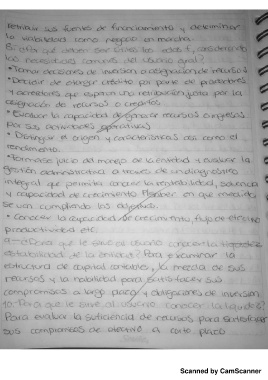 retribuir sus fuentes de financiamiento y determinar
la viabilidad como negocio en marcha.
8- ¿En qué deben ser útiles los edos f. considerando
las necesidades comunes del usuario gral?
• Tomar decisiones de inversión o asignación de recursos
• Decidir de otorgar crédito por parte de proveedores
y acreedores que esperan una retribución justa por la
asignación de recursos o créditos
• Evaluar la capacidad de generar recursos o ingresos
por sus actividades operativas
• Distinguir el origen y características así como el
rendimiento.
• Formarse juicio del manejo de la entidad y evaluar la
gestión administrativa a través de un diagnóstico
integral que permita conocer la rentabilidad, solvencia
y capacidad de crecimiento en que medida
se van cumpliendo los objetivos.
• Conocer la capacidad de crecimiento, flujo de efectivo
productividad etc.
9- ¿Para qué le sirve al usuario conocer la
estabilidad de la entidad? Para examinar la
estructura de capital contable, la mezcla de sus
recursos y la habilidad para satisfacer sus
compromisos a largo plazo y obligaciones de inversión
10- Para que le sirve al usuario conocer la liquidez?
Para evaluar la suficiencia de recursos para satisfacer
sus compromisos de efectivo a corto plazo
Scanned by CamScanner